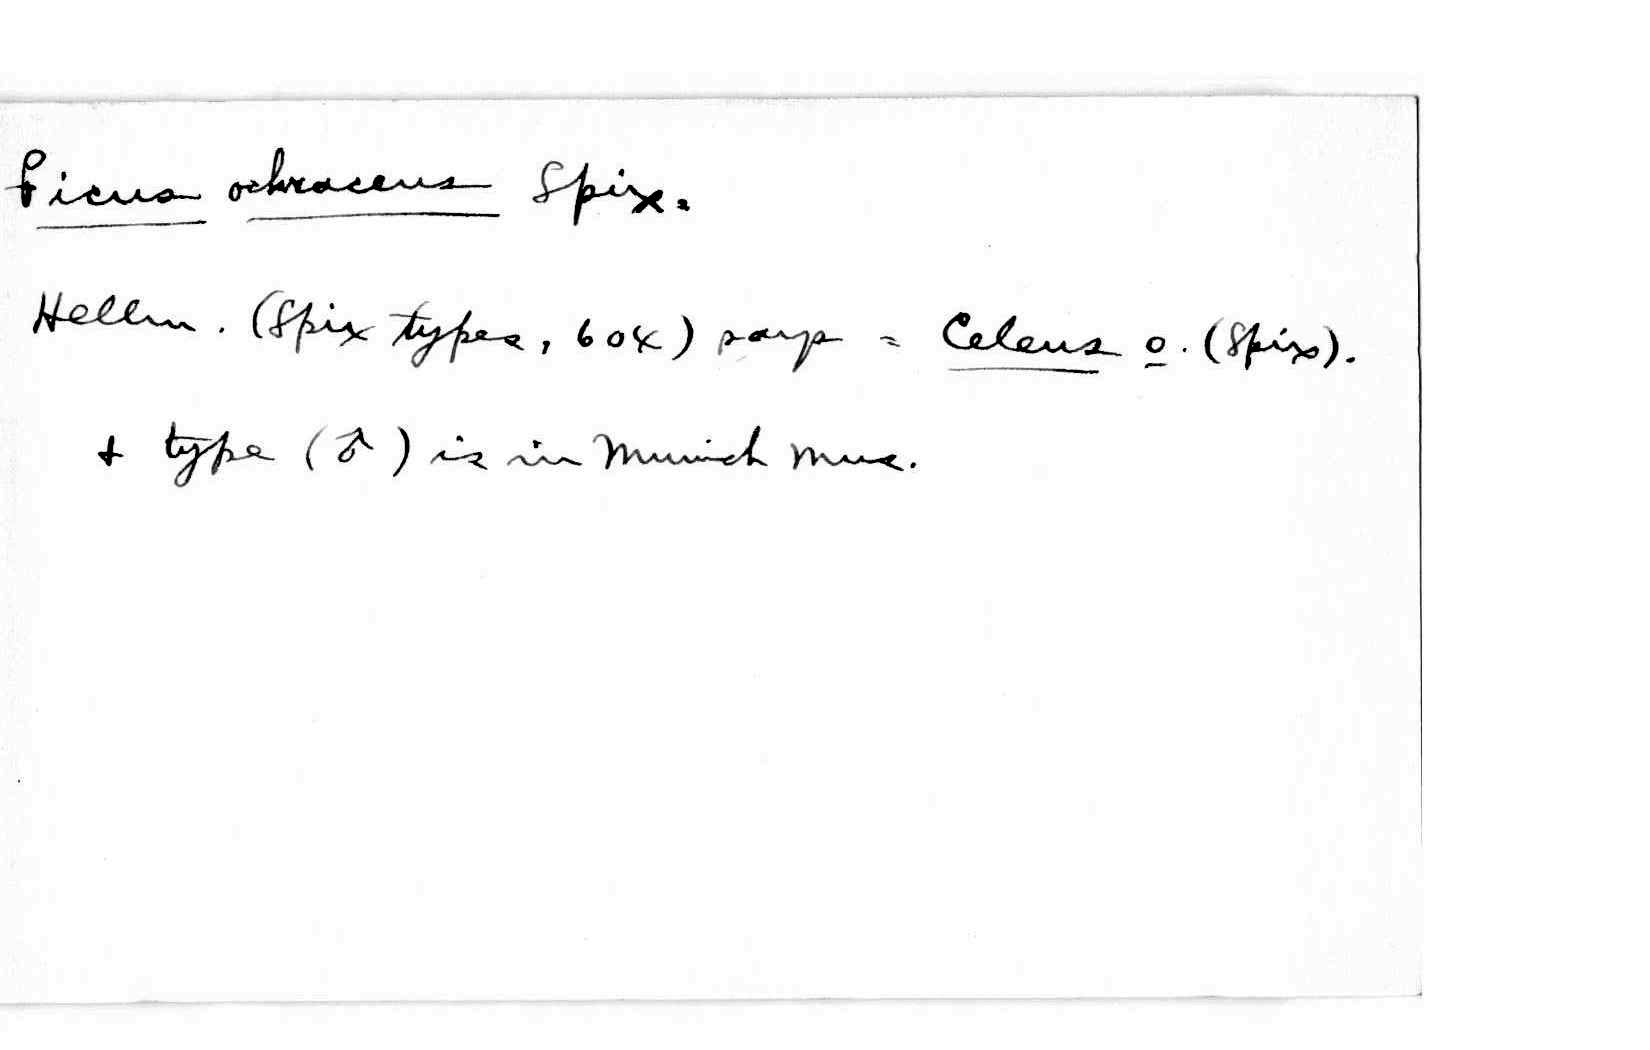 Picus ochraceus Spix.
Hellm. (Spix types, 604) says = Celeus o. (Spix).
+ type (♂) is in Munich Mus.